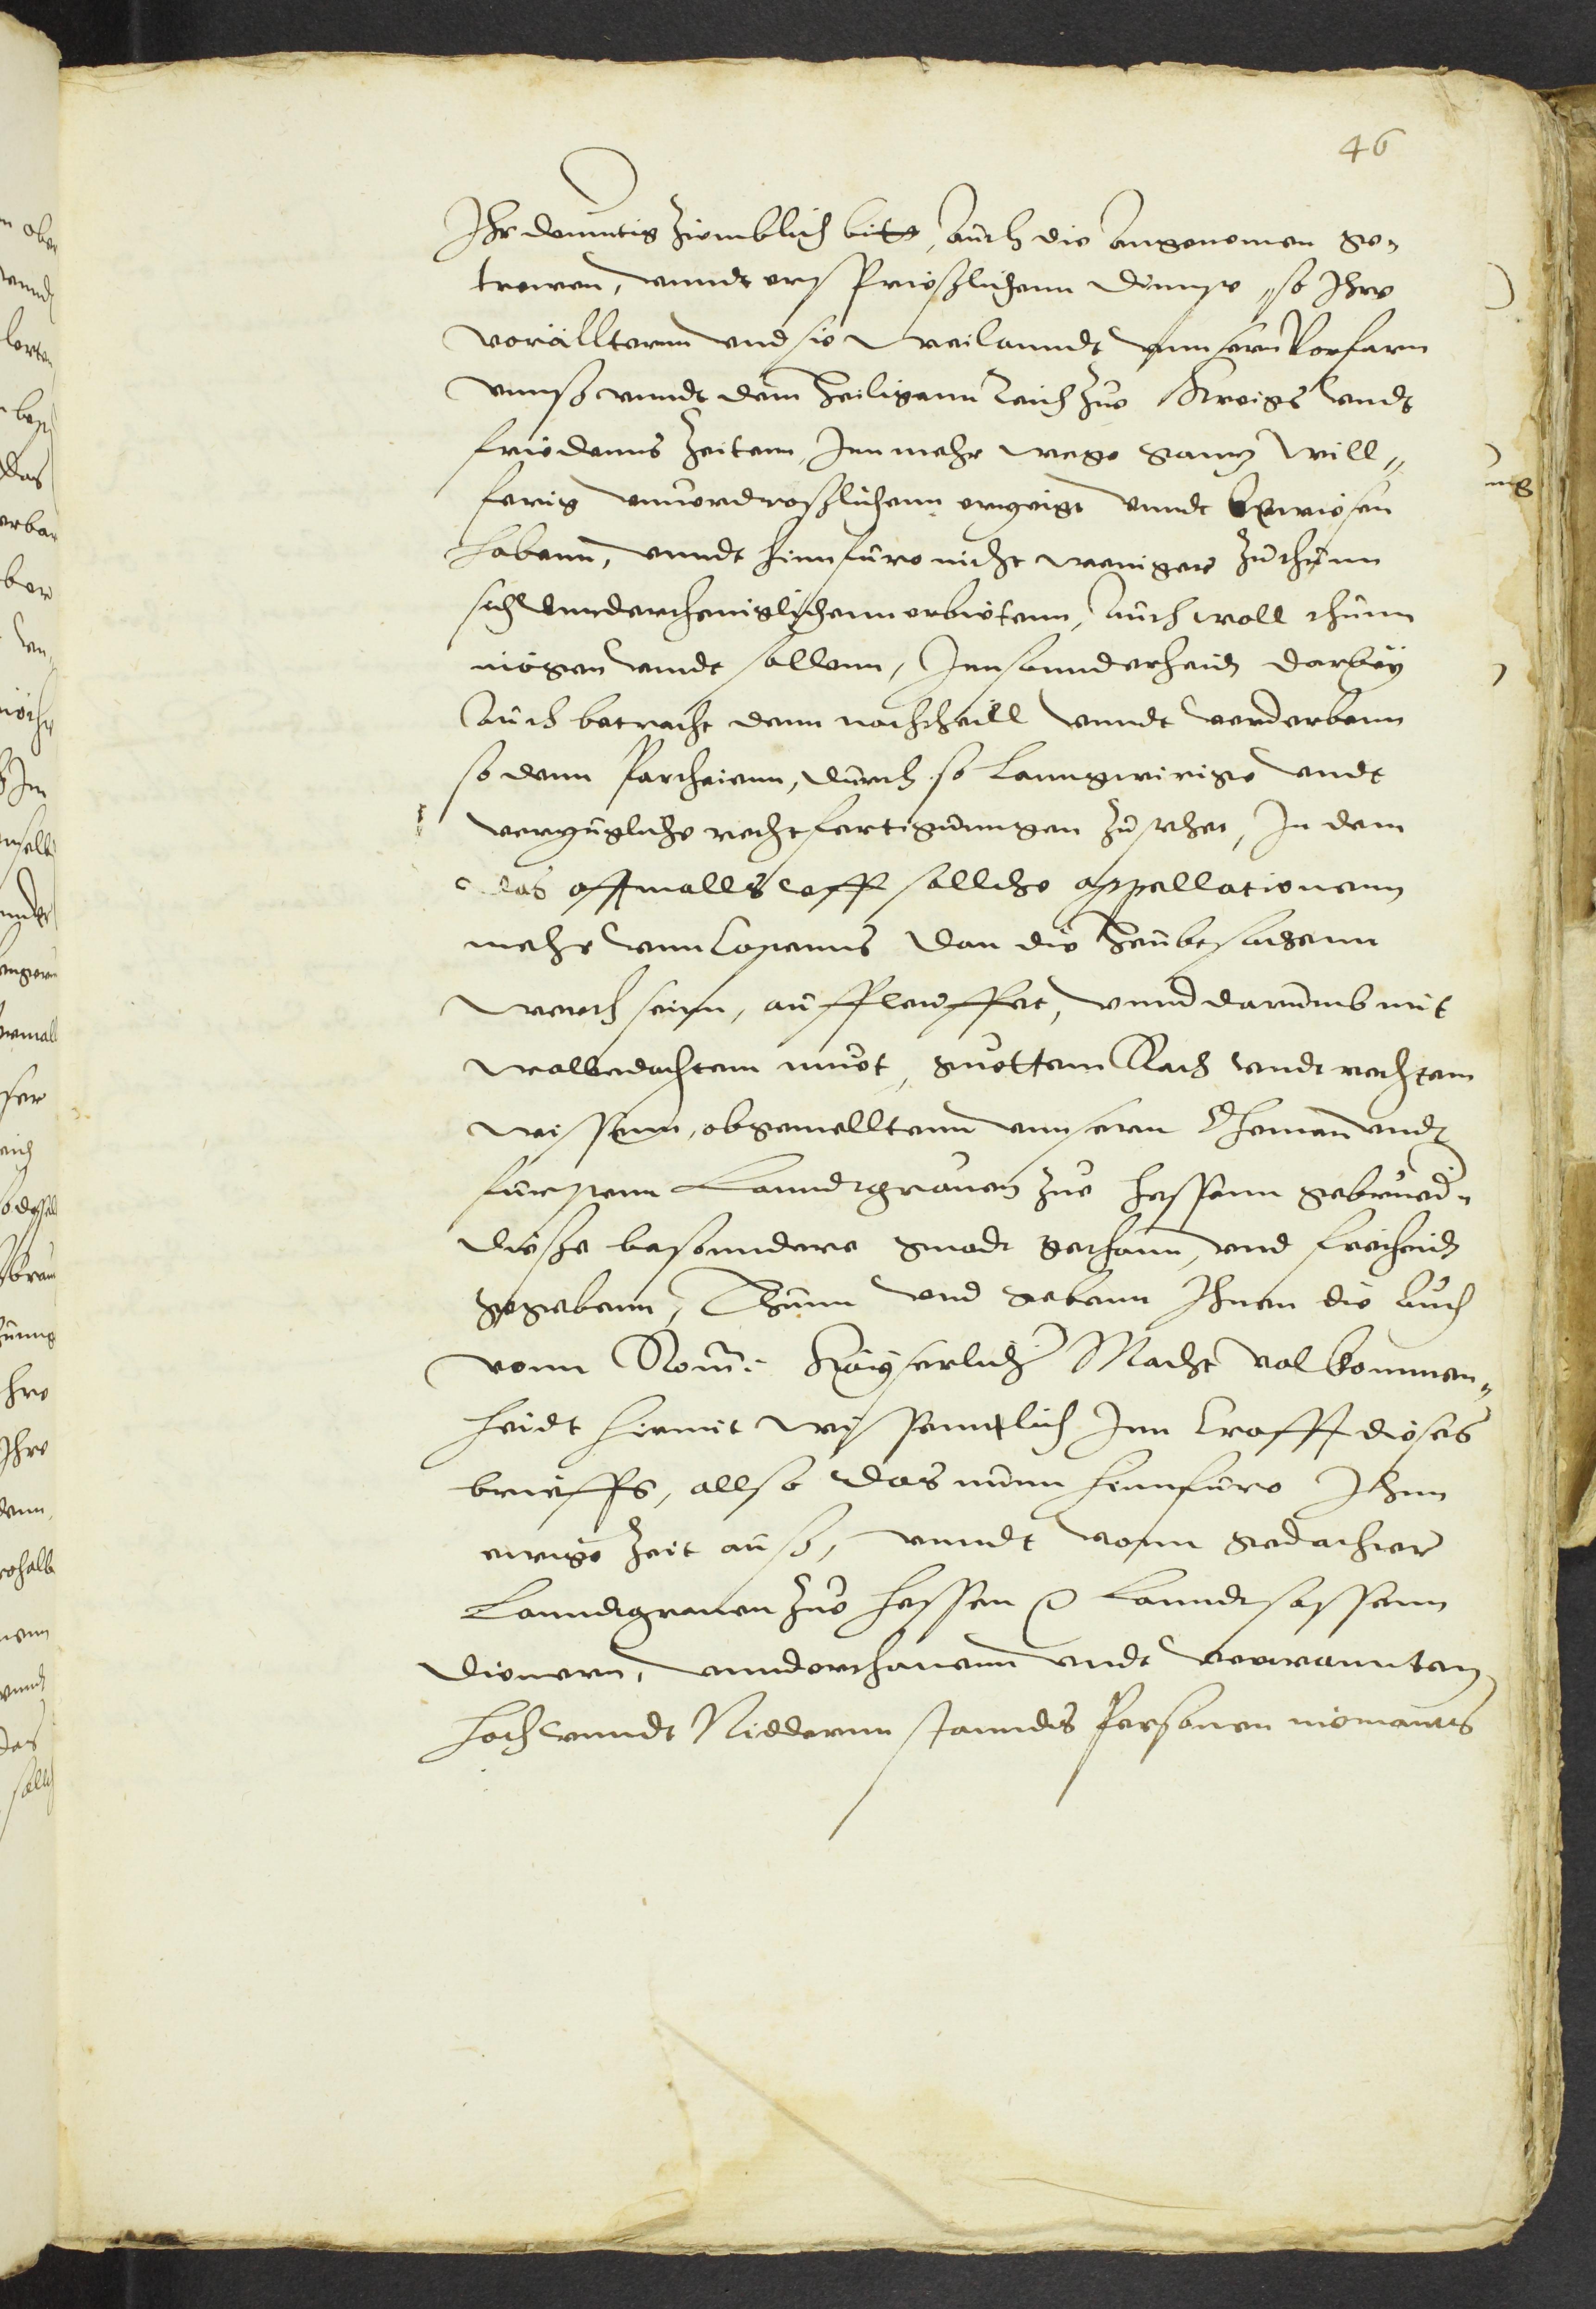 46
Ihr demutig ziemblich bitt, auch die Angenomen ge„
trewen, vnndt ersprießlichenn dinnste, so Ihre
vorälltternn vnd sie weilanndt vnnsern Vorfarn
vnnß vnndt dem heiligenn Reich zue Kreigs vndt
friedenns Zeitenn, Inn mehr wege ganz will„
ferig vnuerdroßlichenn erzeigt vnndt bewiesen
habenn, vnndt hinnfuro nicht weniger zuthunn
sich vnnderthenniglichenn erbietenn, auch woll thunn
mögen vnndt sollenn, Innsonnderheidt darbey
auch betracht denn nachtheill vnndt verderbenn
so denn Partheienn, durch so lanngwirige vndt
verzugliche rechtfertigunngen zustehet, In dem
das offtmalls vff solliche appellationenn
mehr vnncostenns dan die heubtsachenn
werth seinn, aufflauffet, vnnd darumb mit
wolbedachtem muot, guottem Rath vndt rechtem
wissenn, obgemelltenn vnnsern Ohemen vndt
fürstenn Lanndtgrauen zue Hessenn gebrued„
dieße besonndere gnadt gethann, vnd freiheidt
gegebenn, Thunn vnd gebenn Ihnen die auch
vonn Rom: Kayserlich Macht volkommen„
heidt hiemit wissenntlich Inn krafft dieses
brieffs, allso das nunn hinnfüro Inn
ewige Zeit auß, vnndt vonn gedachter
Lanndtgrauen zue Hessen Lanndtsassenn
dienern, vnnderthanenn vndt verwannten
hoch vnndt Niedernn stanndts Personen niemants